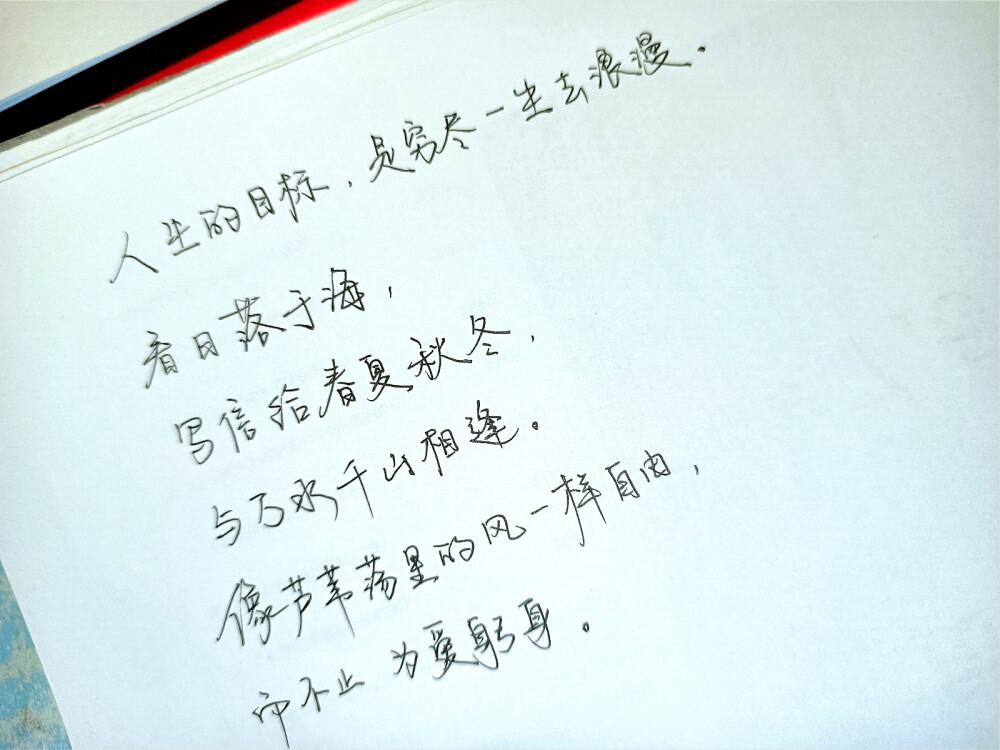 人生的目标，是穷尽一生去浪漫。
看日落于海，
写信给春夏秋冬，
与万水千山相逢。
像芦苇荡里的风一样自由，
而不止为爱躬身。